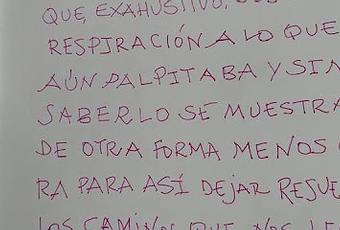 QUE, EXAHUSTIVO,
RESPIRACIÓN A LO QUE
AÚN PALPITABA Y SIN
SABERLO SE MUESTRA
DE OTRA FORMA MENOS
RA PARA ASÍ DEJAR RESUE
LOS CAMINOS QUE NOS LE